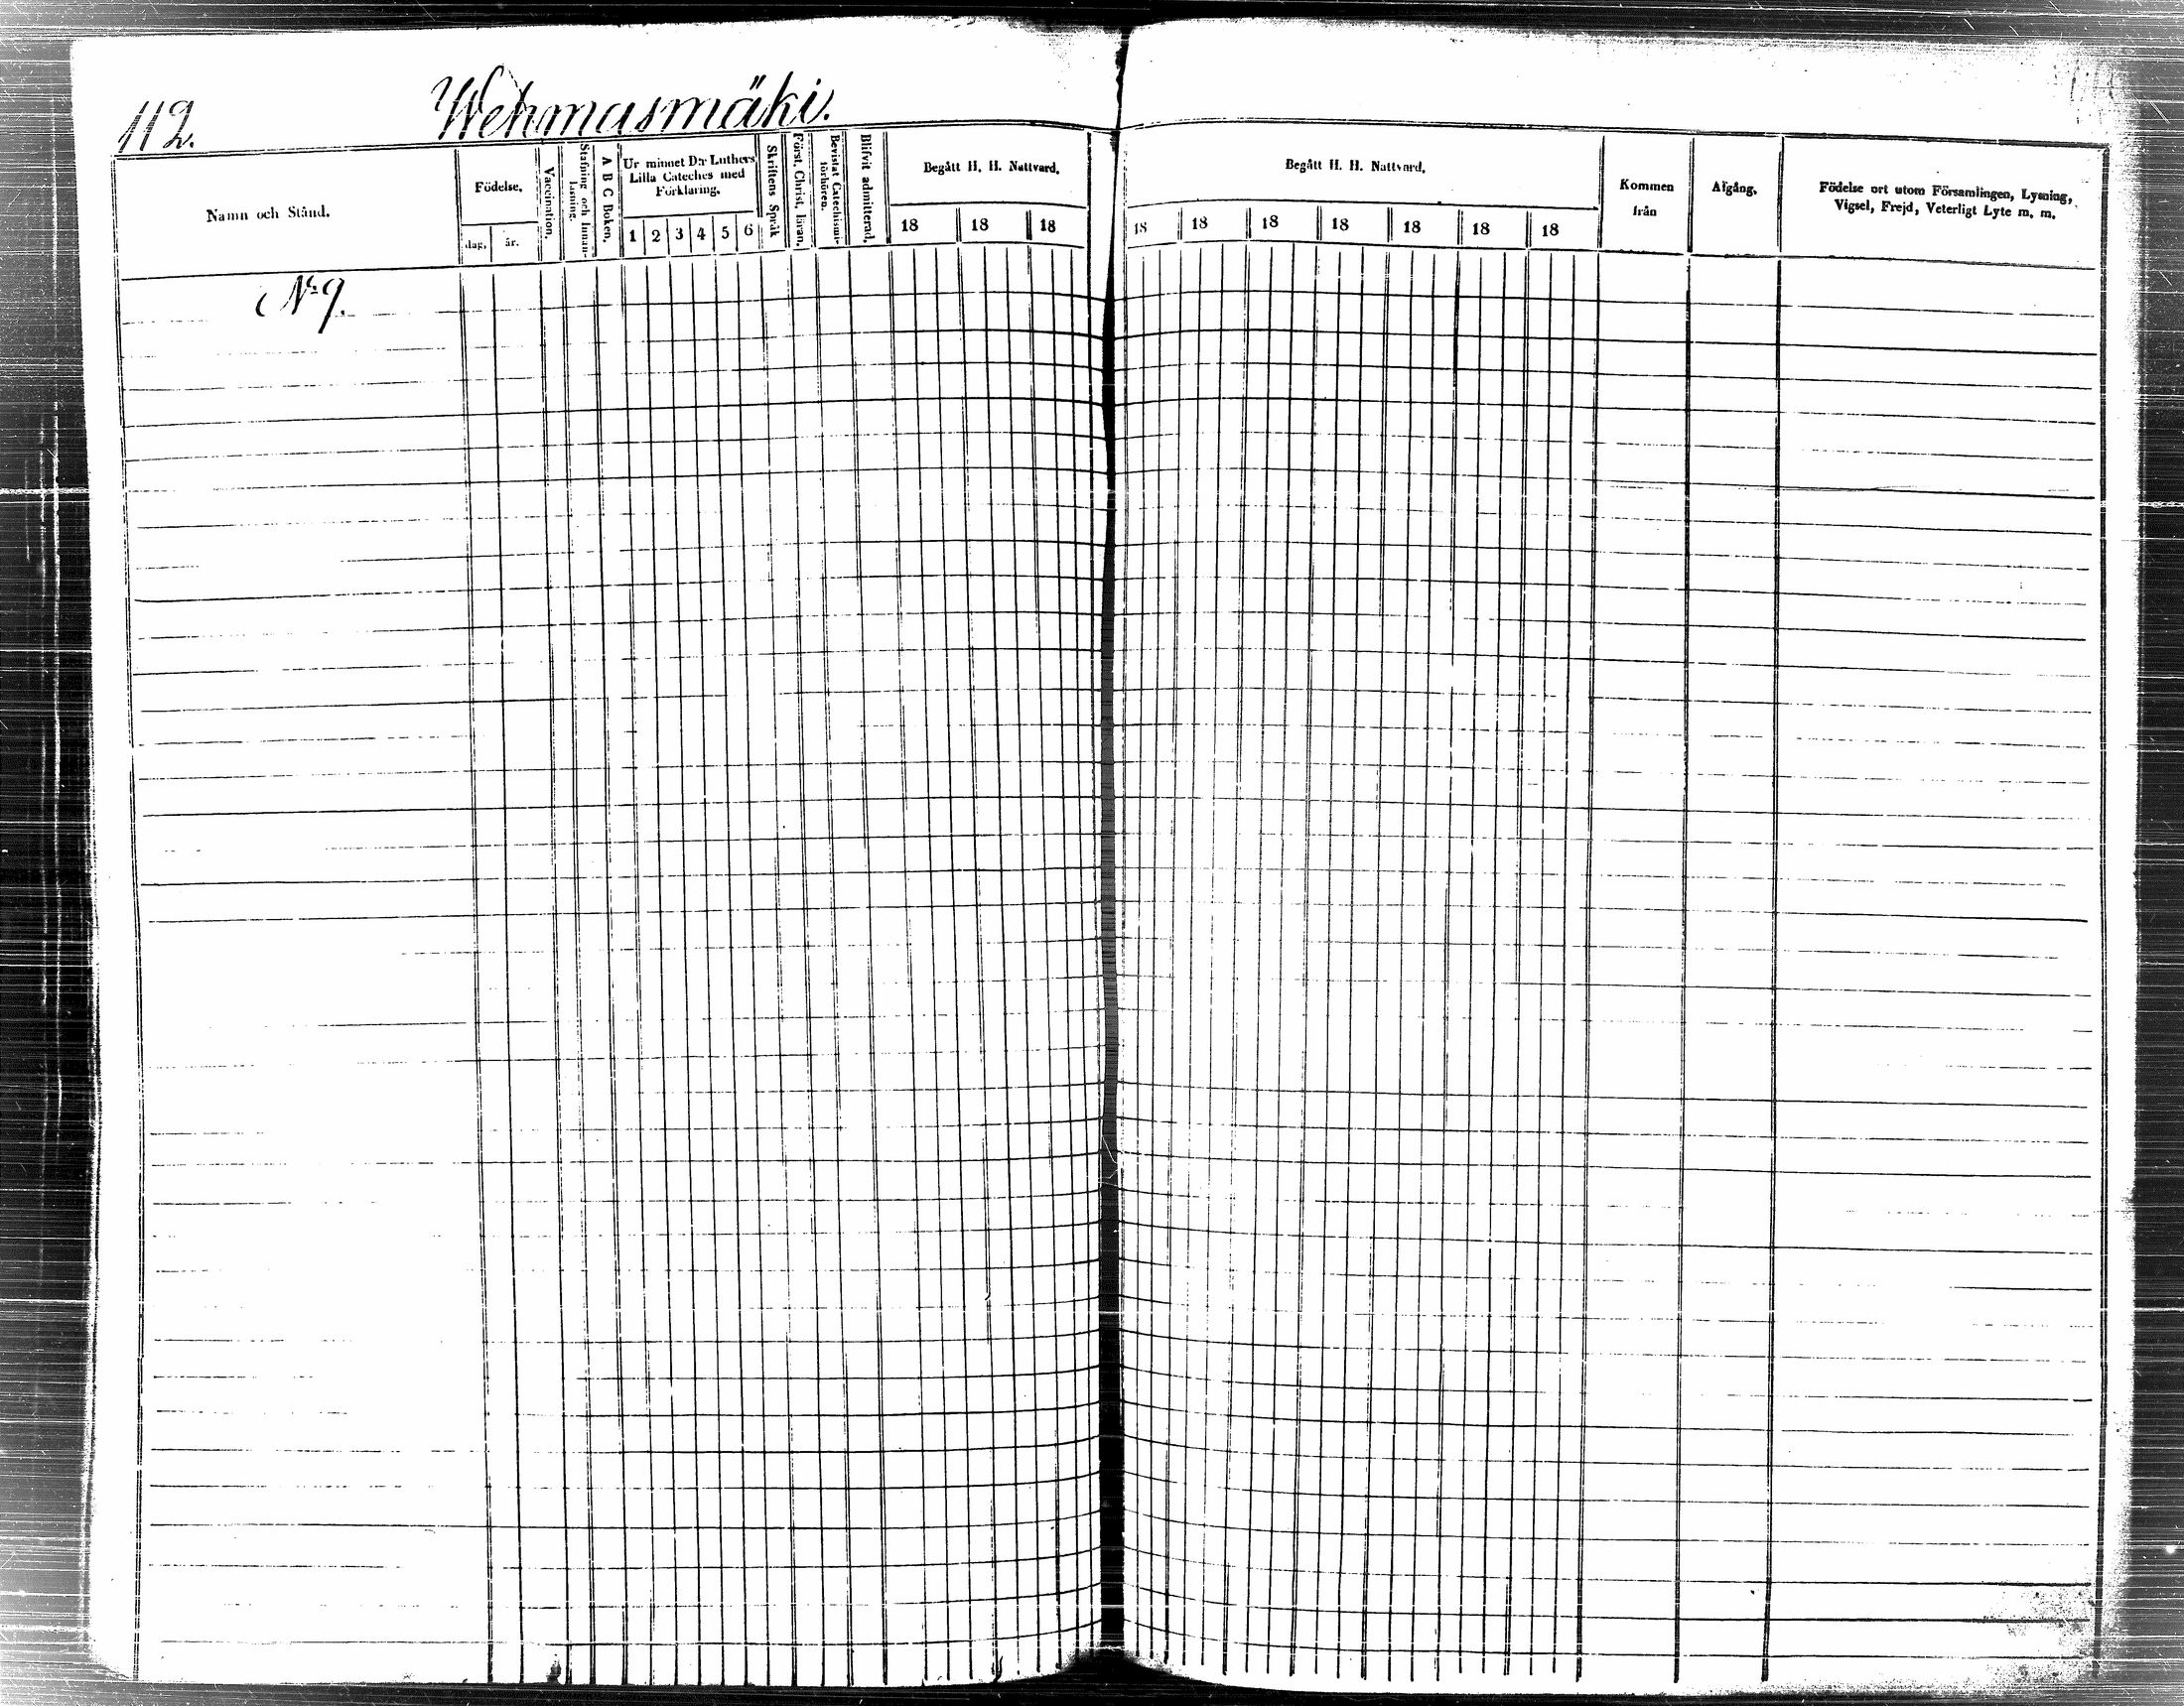 112.
Wehmasmäki.
Namn och Stånd.
Födelse,
dag.
år.
Vaccination.
Stafning och Innan-
läsning.
A B C Boken.
Ur minnet D:r Luthers
Lilla Cateches med
Förklaring.
1 2 3 4 5 6
Skriftens Språk
Först. Christ. läran.
Bevistat Catechismi-
förhören.
Blifvit admitterad.
Begått H. H. Nattvard.
18 18 18
Begått H. H. Nattvard.
18 18 18 18 18 18 18
Kommen
från
Afgång.
Födelse ort utom Församlingen, Lysning,
Vigsel, Frejd, Veterligt Lyte m. m.
No 9.